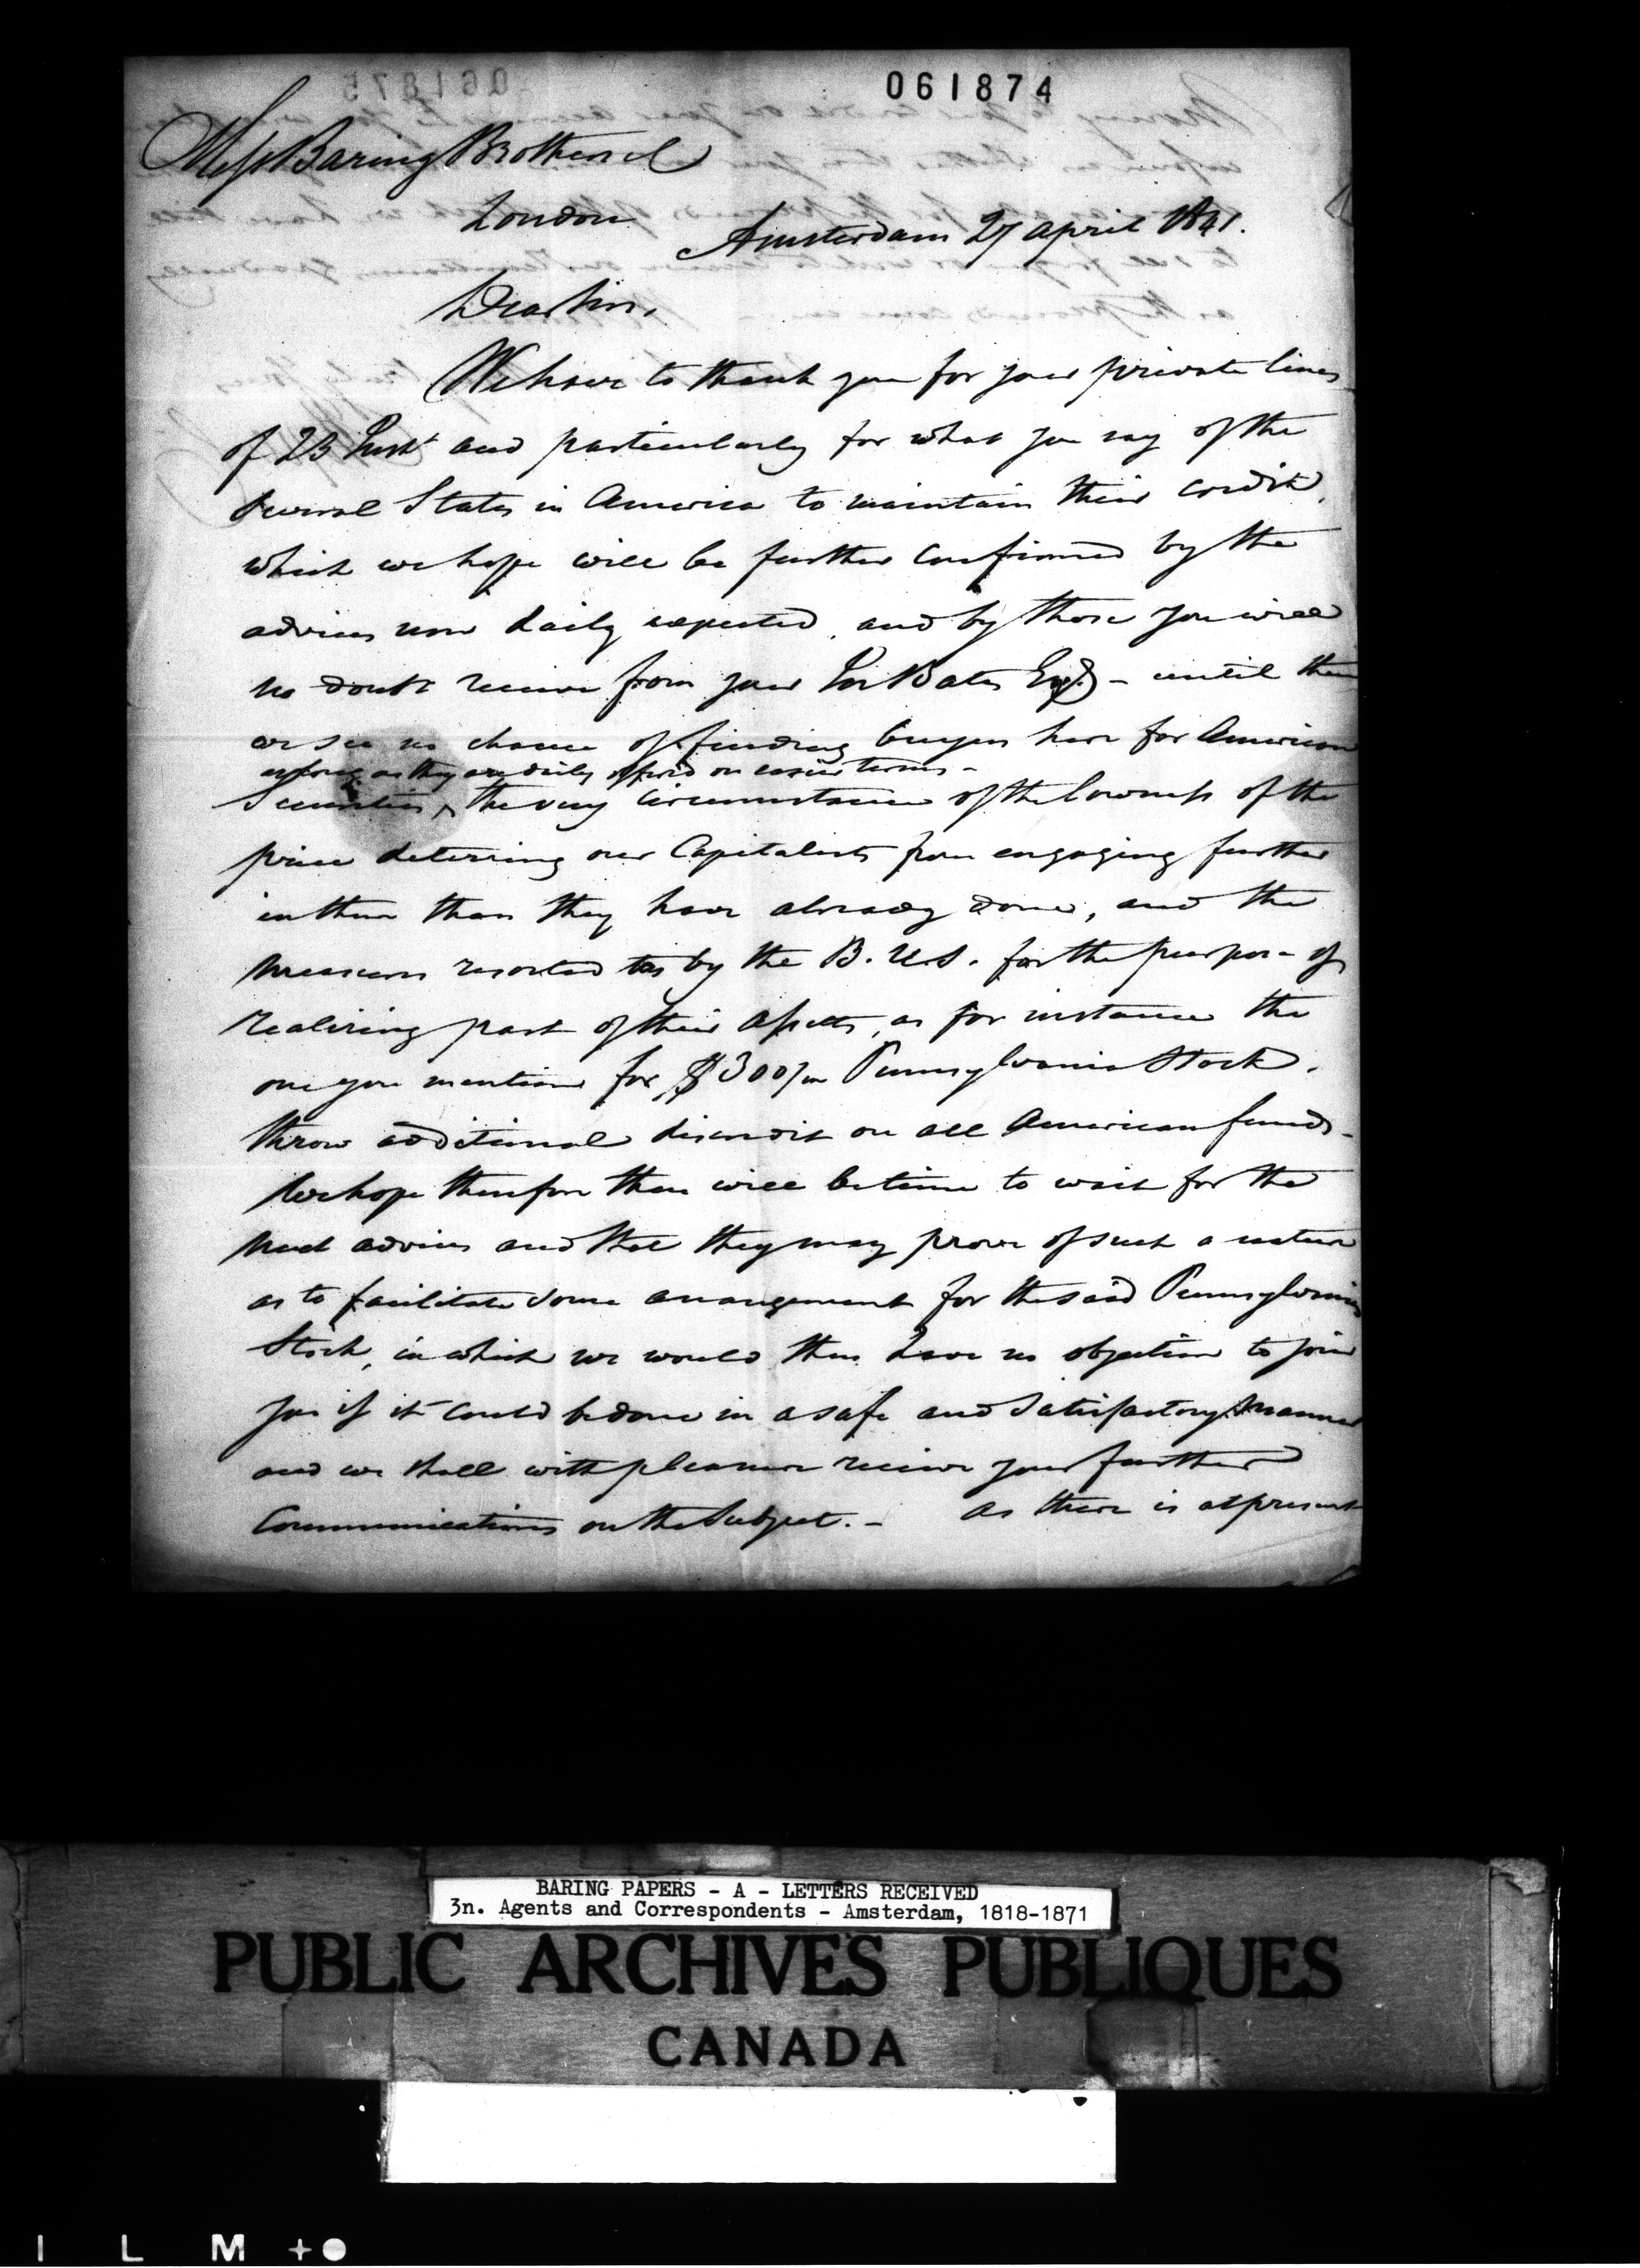 061874
Messrs Baring Brothers &
London
Amsterdam 27 April 1841.
Dear Sirs,
We have to thank you for your private lines
of 23 Inst and particularly for what you say of the
several States in America to maintain their credit,
which we hope will be further confirmed by the
advices now daily expected, and by those you will
no doubt receive from your Bates Esq - until then
we see no chance of finding buyers here for American
as long as they are daily offered on easier terms -
Securities, the very circumstance of the lowness of the
price deterring our Capitalists from engaging further
in them than they have already done, and the
measures resorted to by the B. U.S. for the purpose of
realizing part of their Assetts, as for instance the
one you mention for $300/m Pennsylvania Stock,
throw additional discredit on all American funds -
We hope therefore there will be time to wait for the
next advices and that they may prove of such a nature
as to facilitate some arrangement for the said Pennsylvania
Stock, in which we would then have no objection to join
you if it could be done in a safe and satisfactory manner
and we shall with pleasure receive your further
Communications on the Subject. - As there is at present
BARING PAPERS - A - LETTERS RECEIVED
3n. Agents and Correspondents - Amsterdam, 1818-1871
PUBLIC ARCHIVES PUBLIQUES
CANADA
I L M +